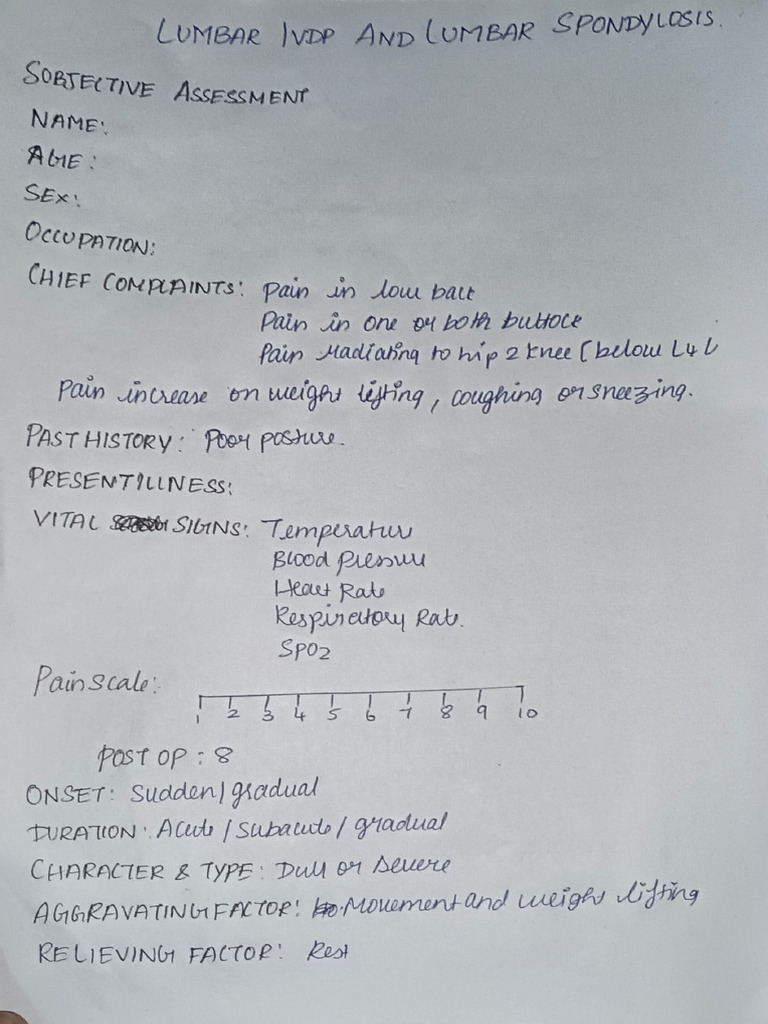 LUMBAR IVDP AND LUMBAR SPONDYLOSIS.
SOBJECTIVE ASSESSMENT
NAME:
AGE:
SEX:
OCCUPATION:
CHIEF COMPLAINTS: Pain in low back
Pain in one or both buttock
Pain radiating to hip 2 knee (below L4 L
Pain increase on weight lifting, coughing or sneezing.
PAST HISTORY: Poor posture.
PRESENT ILLNESS:
VITAL SIGNS: Temperature
Blood Pressure
Heart Rate
Respiratory Rate.
SPO2
Pain scale:
1 2 3 4 5 6 7 8 9 10
POST OP : 8
ONSET: Sudden/gradual
DURATION: Acute/Subacute/gradual
CHARACTER & TYPE: Dull or severe
AGGRAVATING FACTOR: Movement and weight lifting
RELIEVING FACTOR: Rest